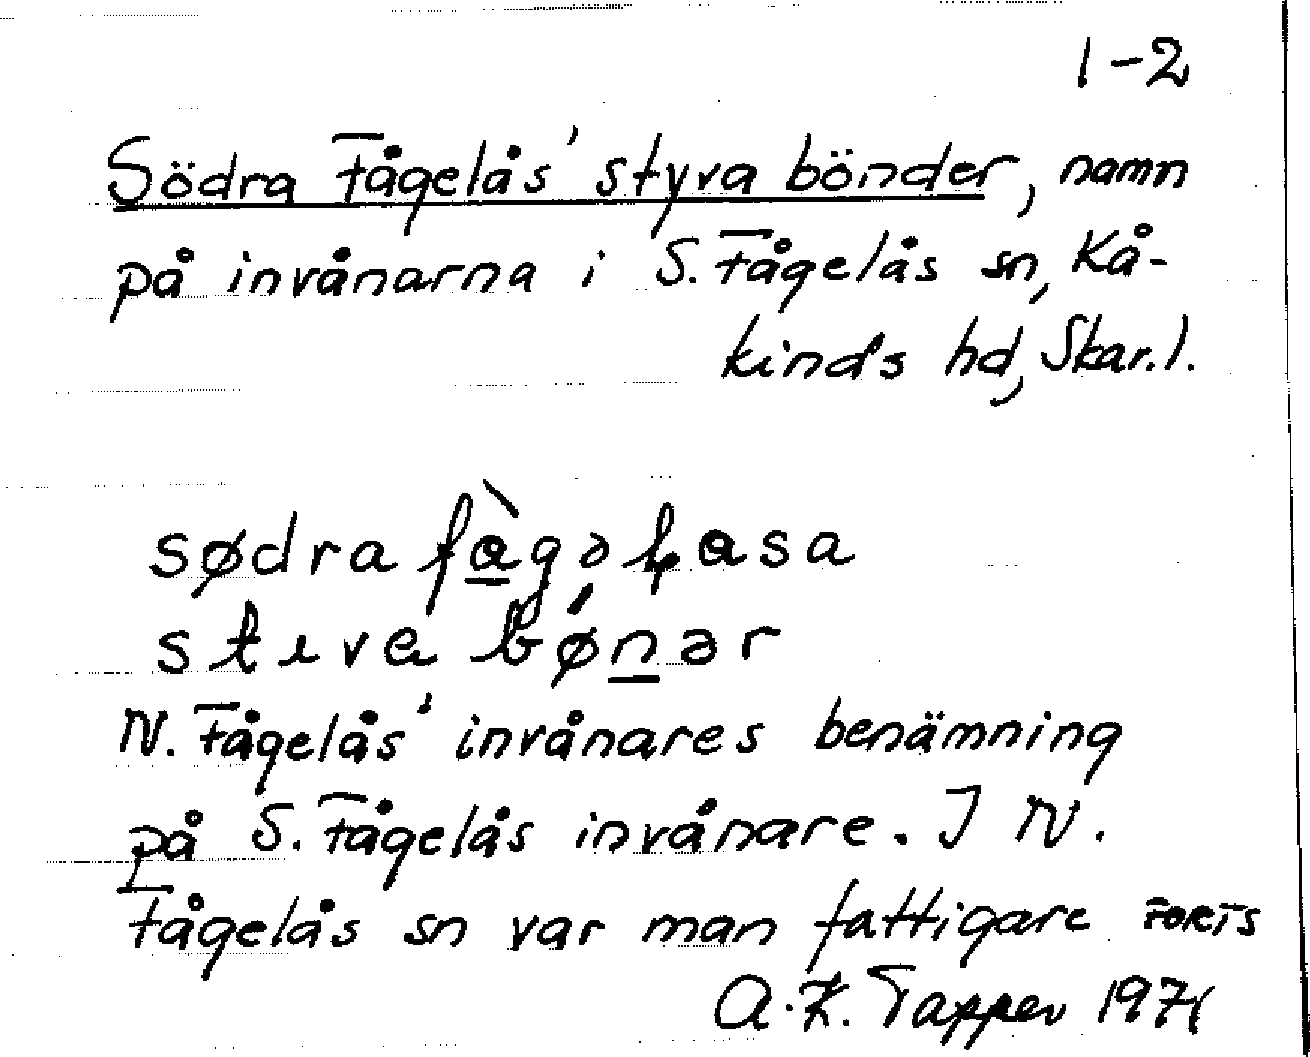 1-2
Södra Fågelås' styva bönder, namn
på invånarna i S. Fågelås sn, Kå-
kinds hd, Skar.l.
sødra fàgəɫasa
stɩva bǿnər
N. Fågelås' invånares benämning
på S. Fågelås invånare. I N.
Fågelås sn var man fattigare FORTS
A.K. Tapper 1971